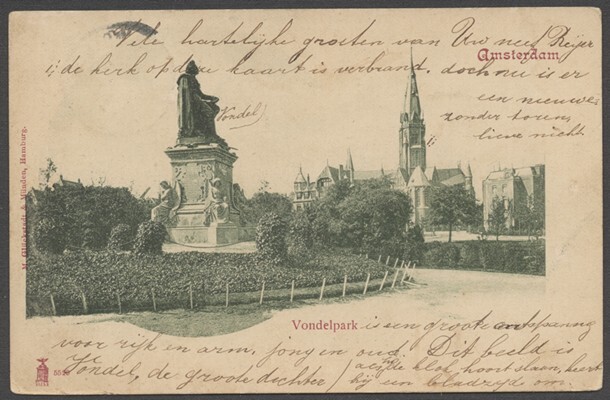 Vele hartelijke groeten van Uw neef Reijer
Amsterdam
ij de kerk op deze kaart is verbrand, doch nu is er
een nieuwe
zonder toren,
lieve nicht
Vondel
M. Glückstadt & Münden, Hamburg.
Vondelpark
is een groote ontspanning
voor rijk en arm, jong en oud. Dit beeld is
Vondel, de groote dichter
als je klok, hoort slaan, keert
hij een bladzijd om.